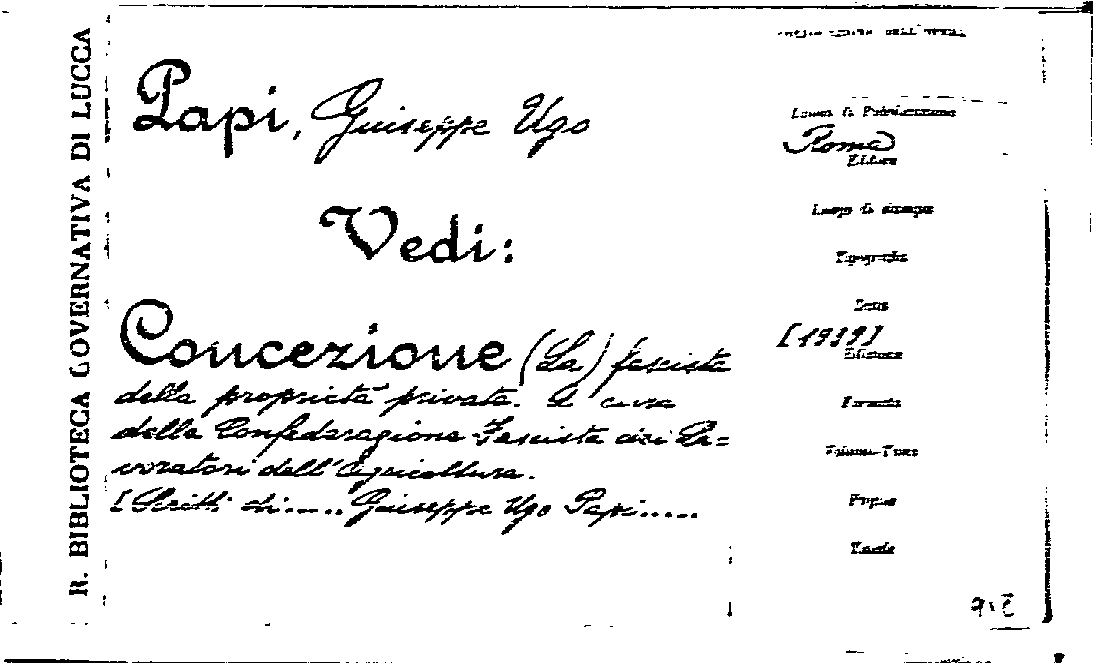 R. BIBLIOTECA GOVERNATIVA DI LUCCA
Papi, Giuseppe Ugo
Vedi:
Concezione (La) fascista
della proprietà privata. A cura
della Confederazione Fascista dei La=
voratori dell'Agricoltura.
[Scritti di..... Giuseppe Ugo Papi.....
Luogo di Pubblicazione
Roma
Editore
Luogo di stampa
Tipografia
Data
[1939]
Edizione
Formato
Volume-Tomo
Pagine
Tavole